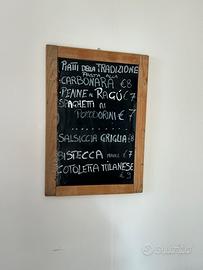 PIATTI DELLA TRADIZIONE
PASTA ALLA
-CARBONARA €8
-PENNE AL RAGÚ €7
SPAGHETTI AI
POMODORINI €7
SALSICCIA GRIGLIA €8
BISTECCA €7
COTOLETTA MILANESE
€9
subito.it